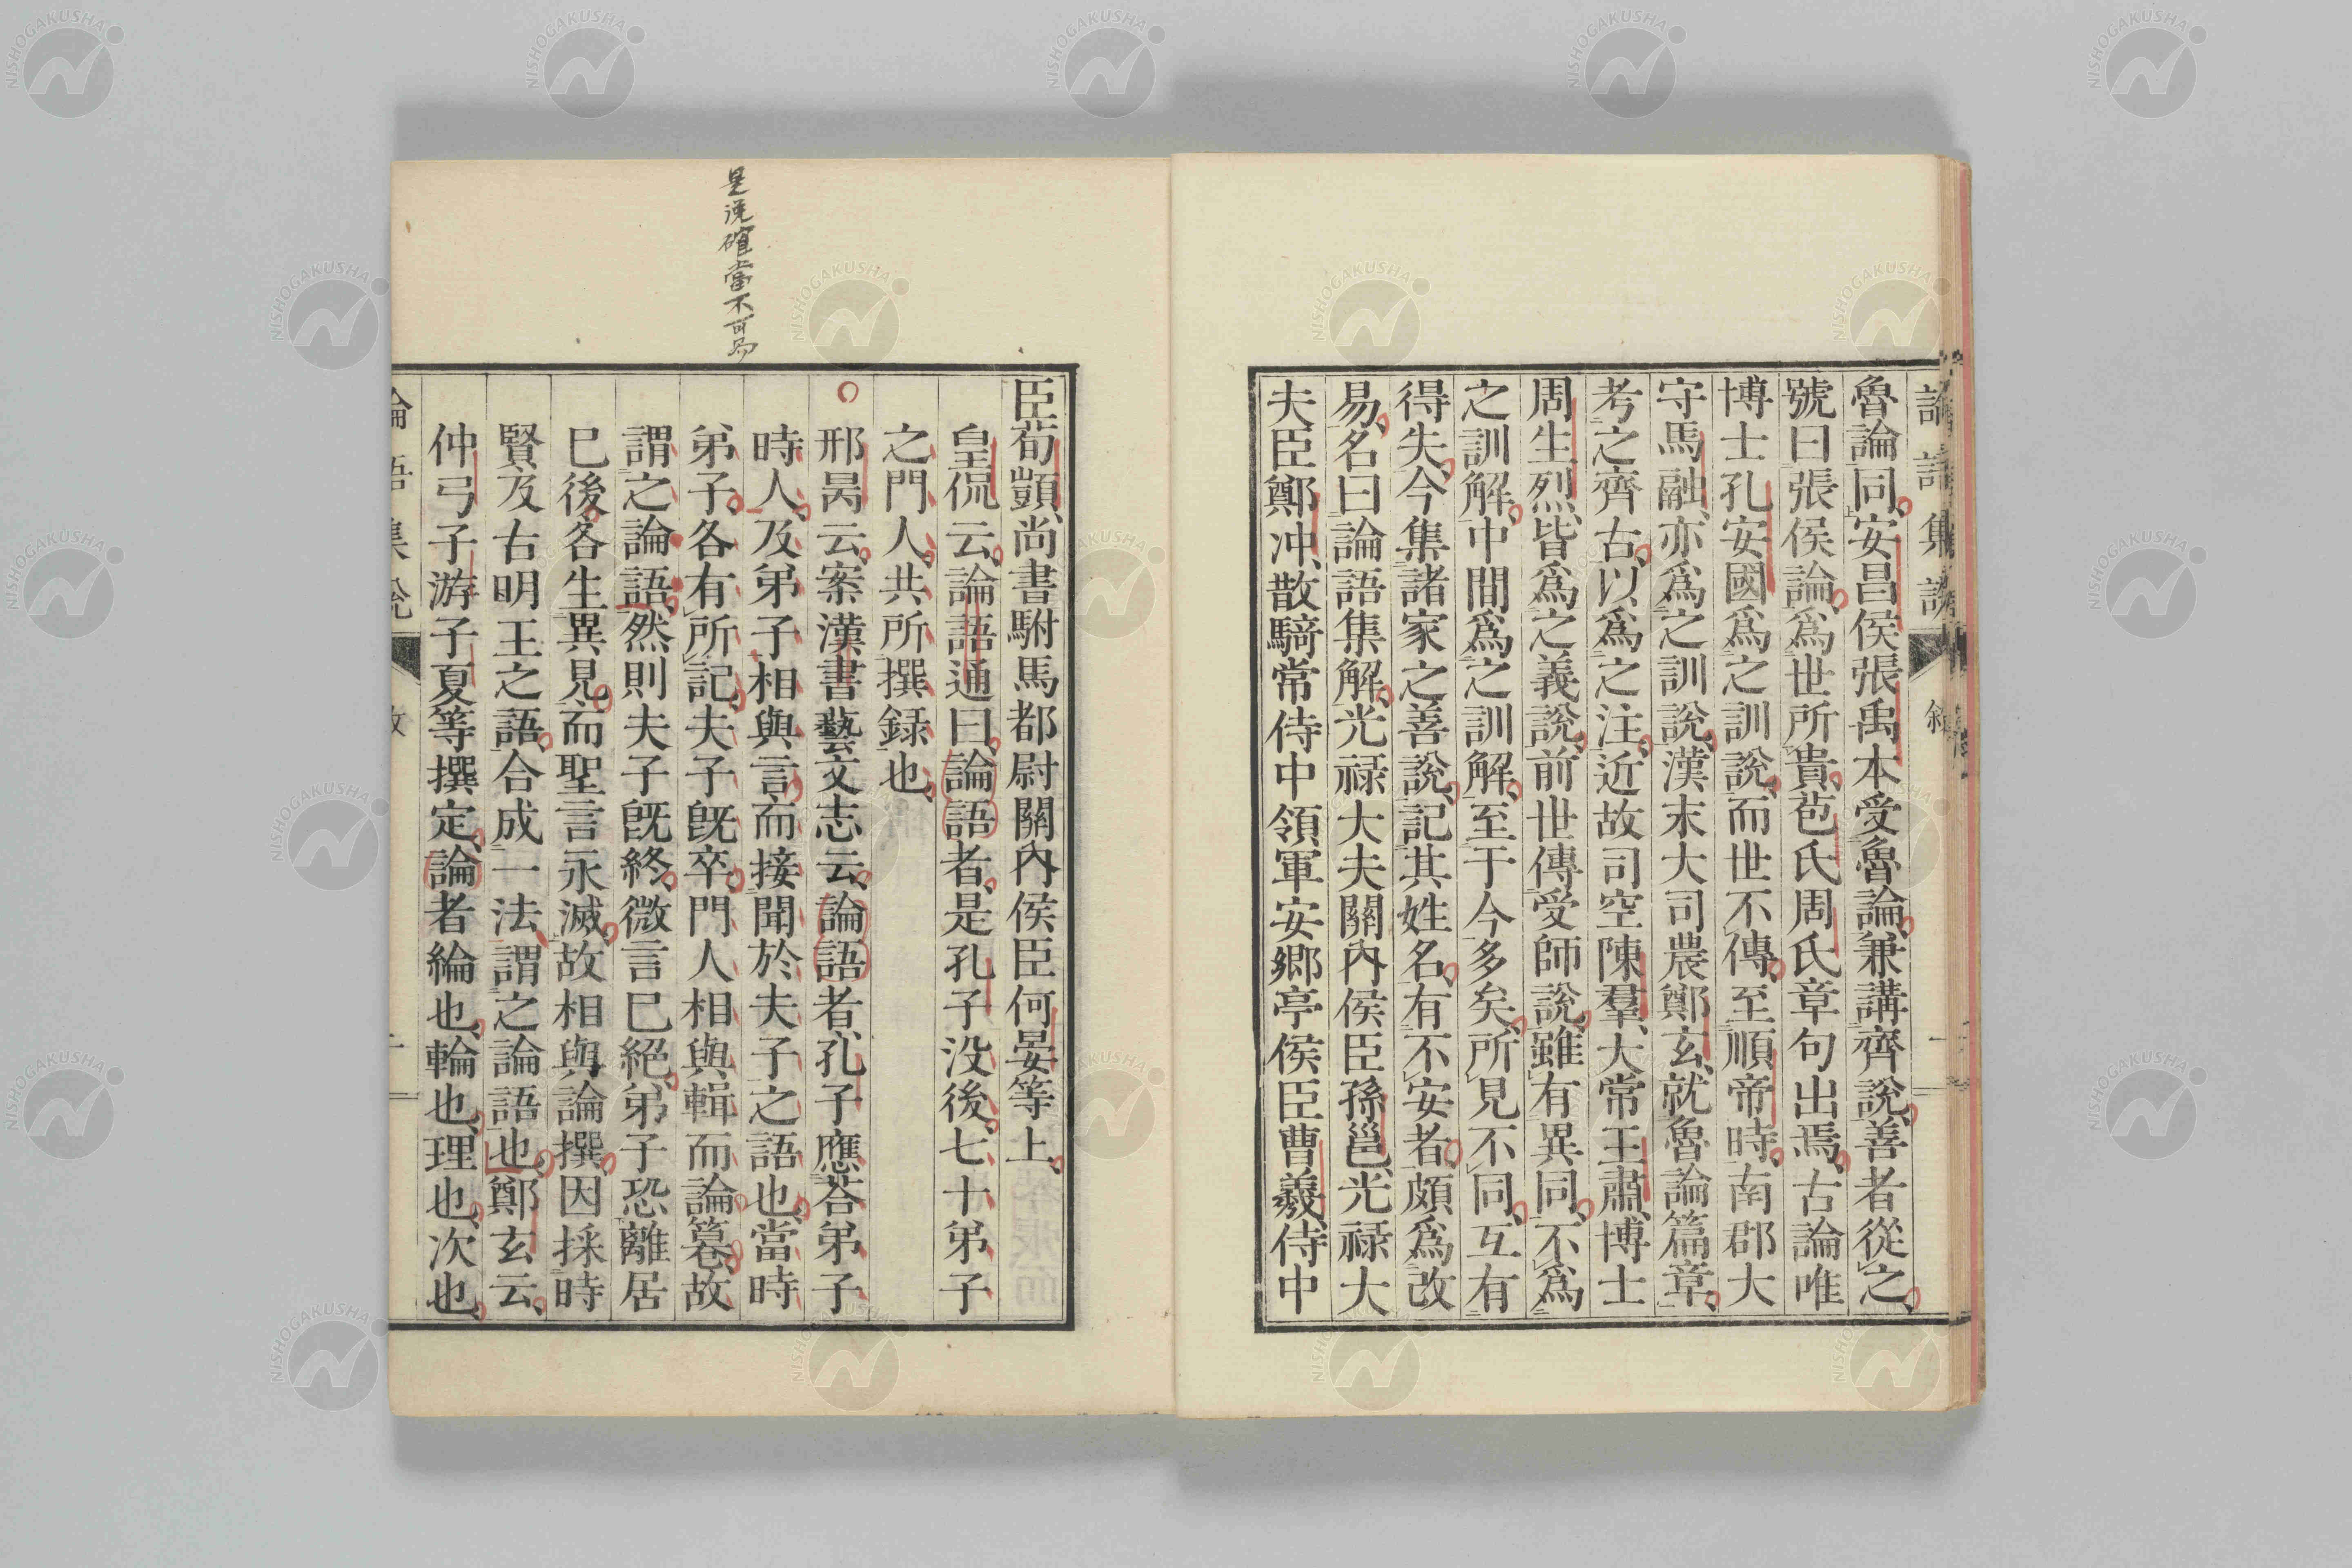 論語集說
敘
一
魯論同、安昌侯張禹本受魯論、兼講齊說、善者從之、
號曰張侯論、爲世所貴、苞氏周氏章句出焉、古論唯
博士孔安國爲之訓說、而世不傳、至順帝時、南郡大
守馬融、亦爲之訓說、漢末大司農鄭玄、就魯論篇章、
考之齊古、以爲之注、近故司空陳羣、大常王肅、博士
周生烈、皆爲之義說、前世傳受師說、雖有異同、不爲
之訓解、中間爲之訓解、至于今多矣、所見不同、互有
得失、今集諸家之善說、記其姓名、有不安者、頗爲改
易、名曰論語集解、光祿大夫關內侯臣孫邕、光祿大
夫臣鄭冲、散騎常侍中領軍安鄉亭侯臣曹羲、侍中
是說確當不可易
臣荀顗、尚書駙馬都尉關內侯臣何晏等上、
皇侃云、論語通曰、論語者、是孔子沒後、七十弟子
之門人、共所撰錄也、
邢昺云、案漢書藝文志云、論語者、孔子應荅弟子
時人、及弟子相與言、而接聞於夫子之語也、當時
弟子、各有所記、夫子旣卒、門人相與輯而論篹、故
謂之論語、然則夫子旣終、微言已絕、弟子恐離居
已後、各生異見、而聖言永滅、故相與論撰、因採時
賢及古明王之語、合成一法、謂之論語也、鄭玄云、
仲弓子游子夏等撰定、論者綸也、輪也、理也、次也、
論語集說
敘
二
NISHOGAKUSHA